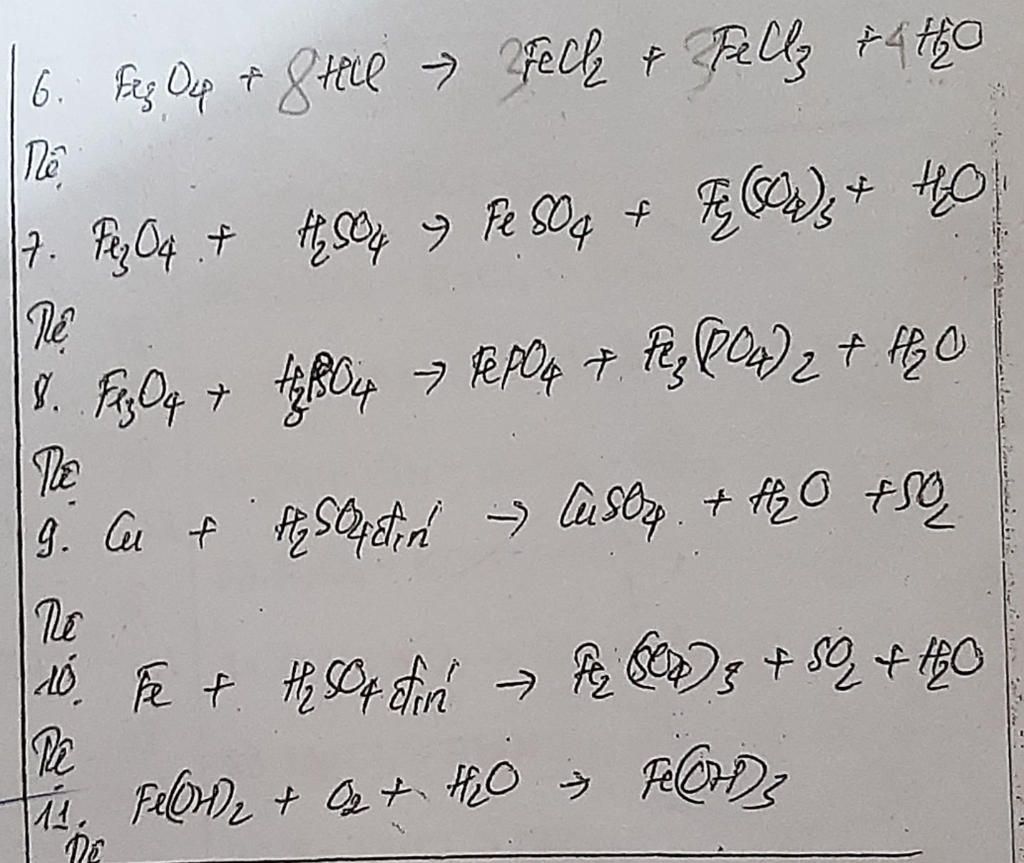 6. Fe₃O₄ + 8HCl → 3FeCl₂ + 3FeCl₃ + 4H₂O
Tlệ
7. Fe₃O₄ + H₂SO₄ → FeSO₄ + Fe₂(SO₄)₃ + H₂O
Tlệ
8. Fe₃O₄ + H₃PO₄ → FePO₄ + Fe₃(PO₄)₂ + H₂O
Tlệ
9. Cu + H₂SO₄ đ,n → CuSO₄ + H₂O + SO₂
Tlệ
10. Fe + H₂SO₄ đ,n → Fe₂(SO₄)₃ + SO₂ + H₂O
Tlệ
11. Fe(OH)₂ + O₂ + H₂O → Fe(OH)₃
Tlệ